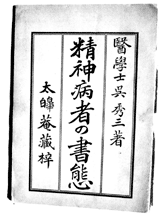 醫學士呉秀三著
精神病者の書態
太皞菴藏梓